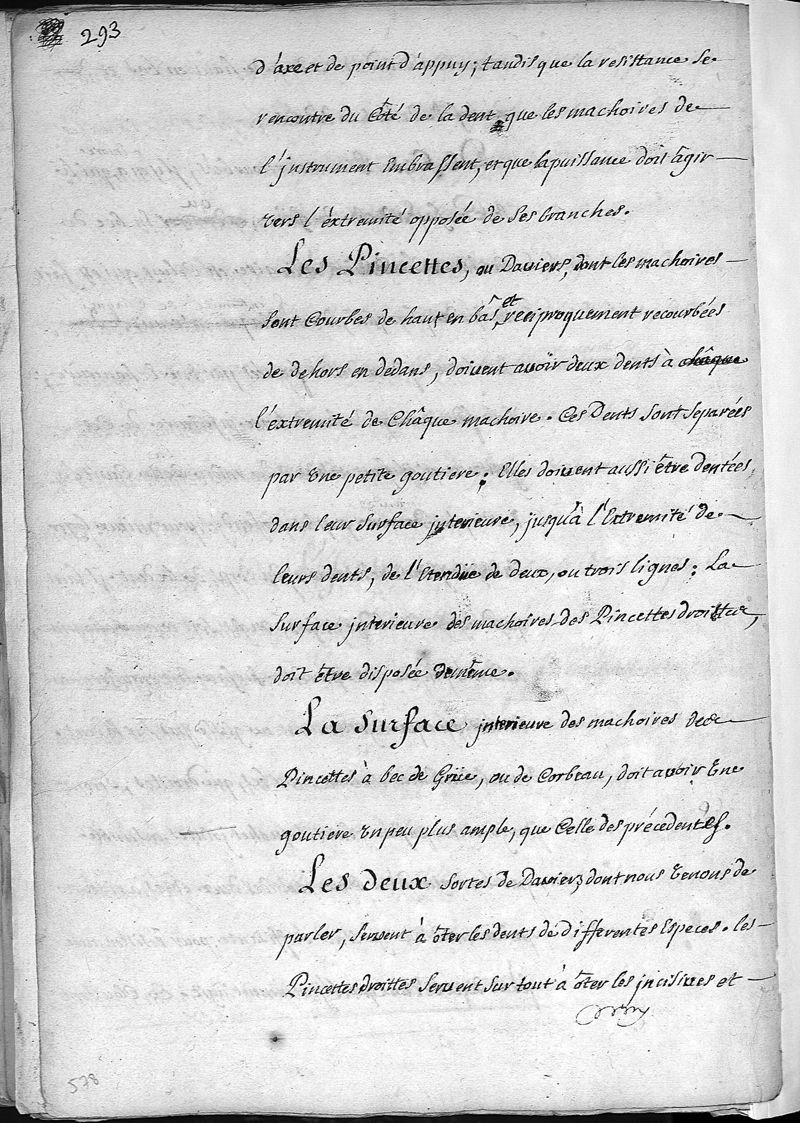 293
d'axe et de point d'appuy; tandis que la resistance se
rencontre du Côté de la dent que les machoires de
l'jnstrument Embrassent, et que la puissance doit âgir
vers l'éxtremité opposée de ses branches.
Les Pincettes, ou Daviers, dont les machoires
sont Courbes de haut en bas, et reciproquement recourbées
de dehors en dedans, doivent avoir deux dents à châque
l'extremité de Châque machoire. Ces Dents sont separées
par Une petite goutiere; Elles doivent aussi être dentées,
dans leur surface jnterieure, jusqu'à l'Extremité de
leurs dents, de l'Etendüe de deux, ou trois lignes; La
surface jnterieure des machoires des Pincettes droittes,
doit être disposée de même.
La surface jnterieure des machoires des
Pincettes à bec de Grüe, ou de Corbeau, doit avoir Une
goutiere Un peu plus ample, que Celle des précedentes.
Les deux sortes de Daviers dont nous Venons de
parler, servent à ôter les dents de differentes Especes. les
Pincettes droittes servent sur tout à ôter les jncisives et
578